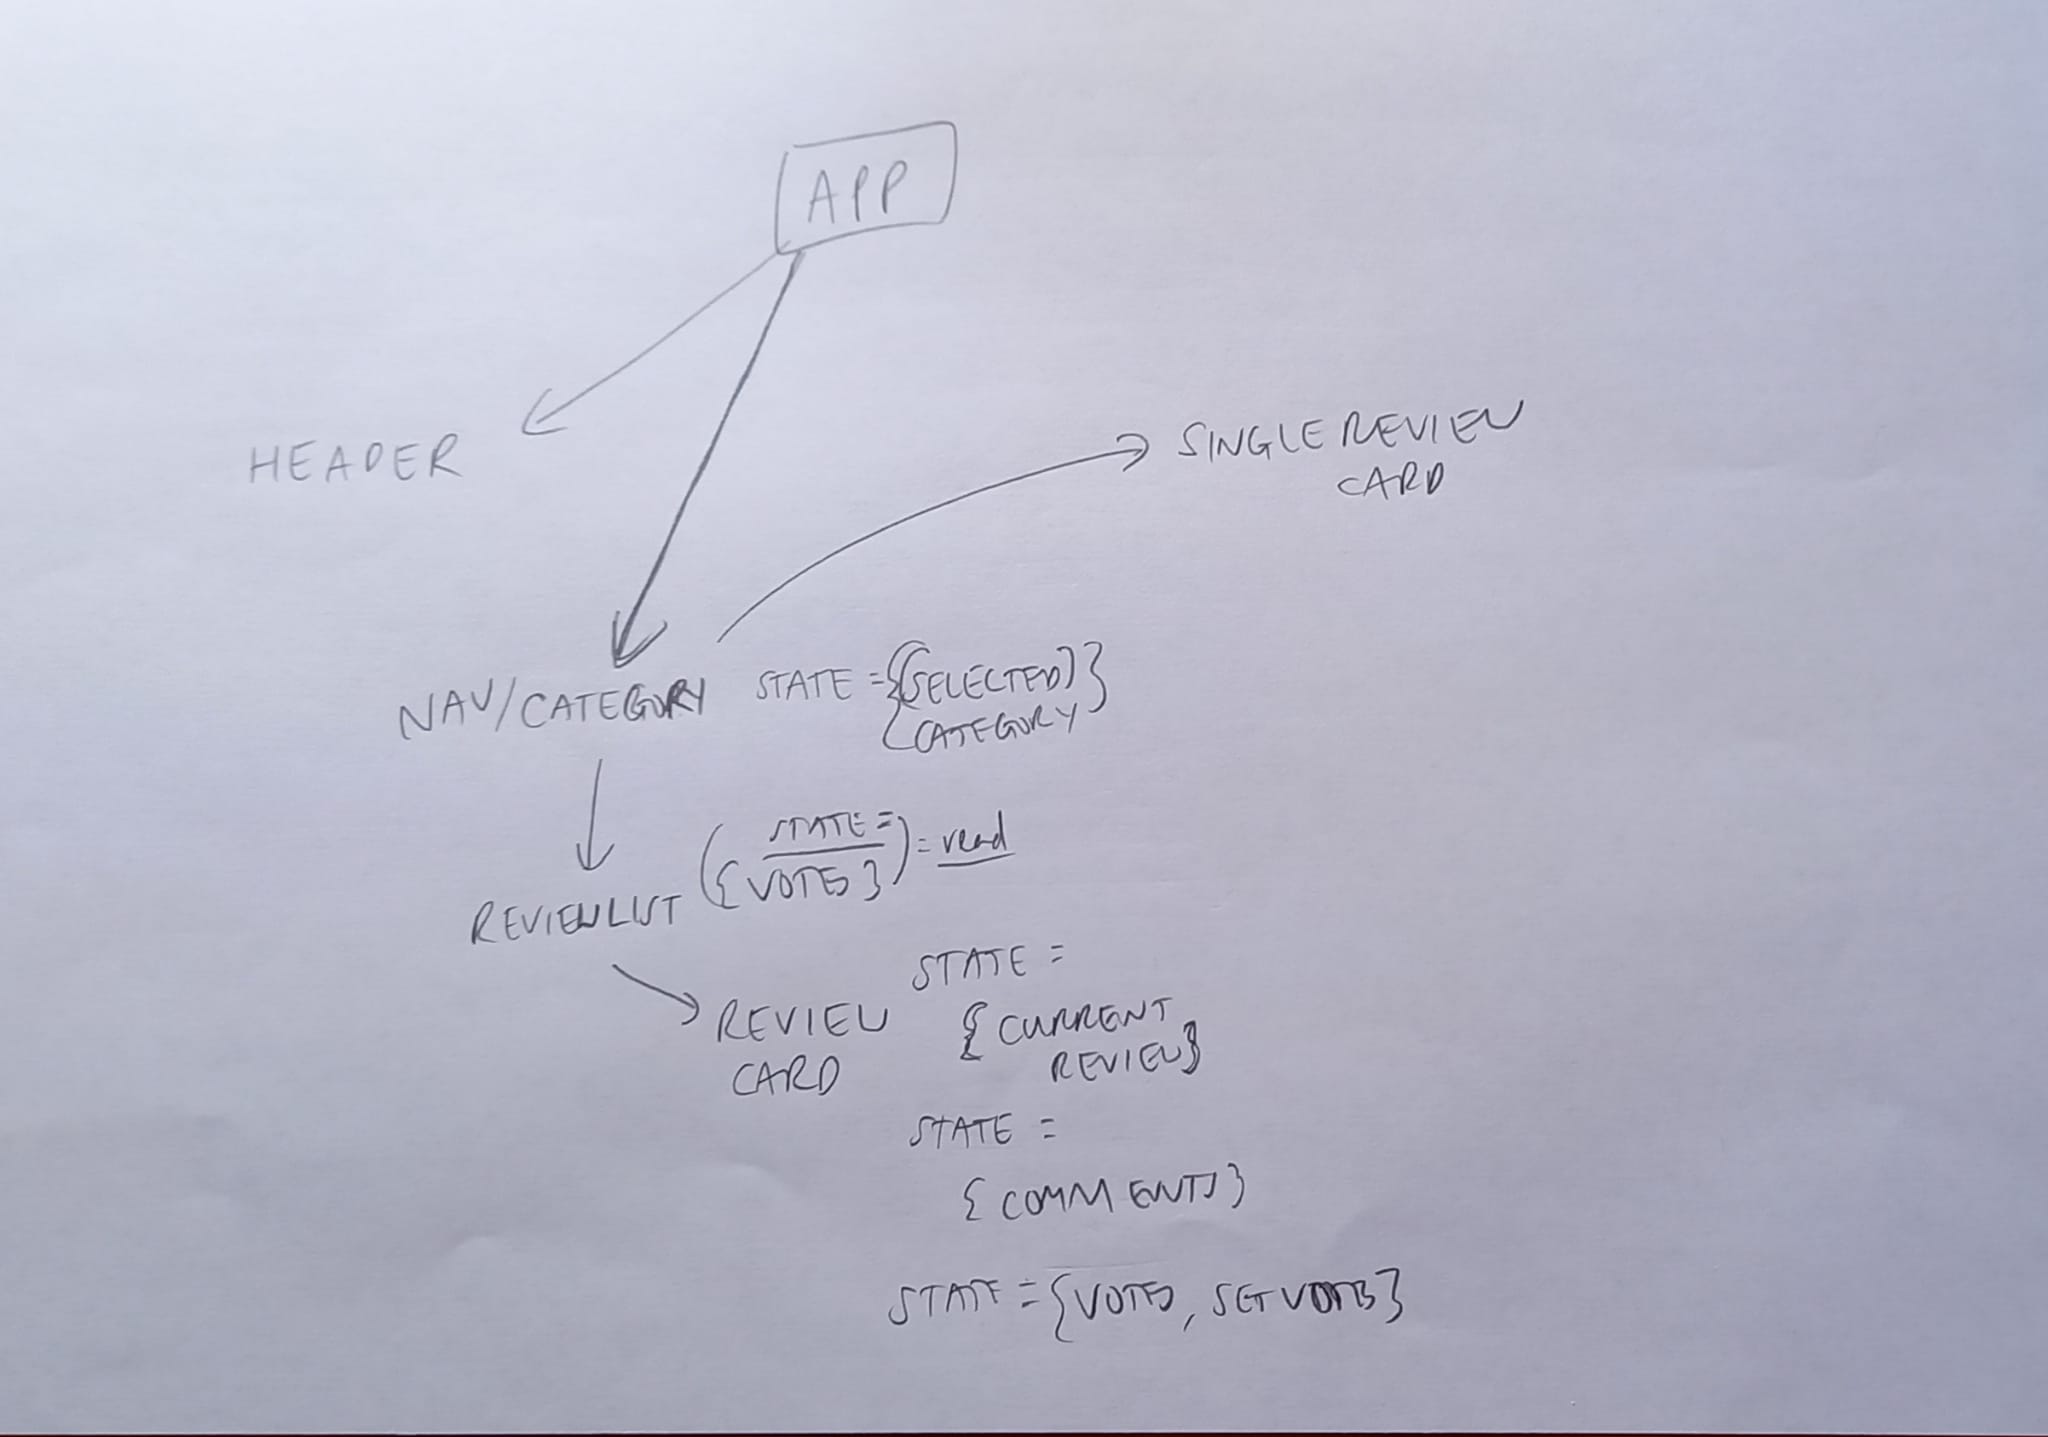 APP
HEADER
SINGLE REVIEW
CARD
NAV/CATEGORY STATE = {(SELECTED)}
{CATEGORY
STATE =
({VOTES}) = read
REVIEWLIST
STATE =
REVIEW
CARD
{CURRENT
REVIEW}
STATE =
{COMMENTS}
STATE = {VOTES, SETVOTES}